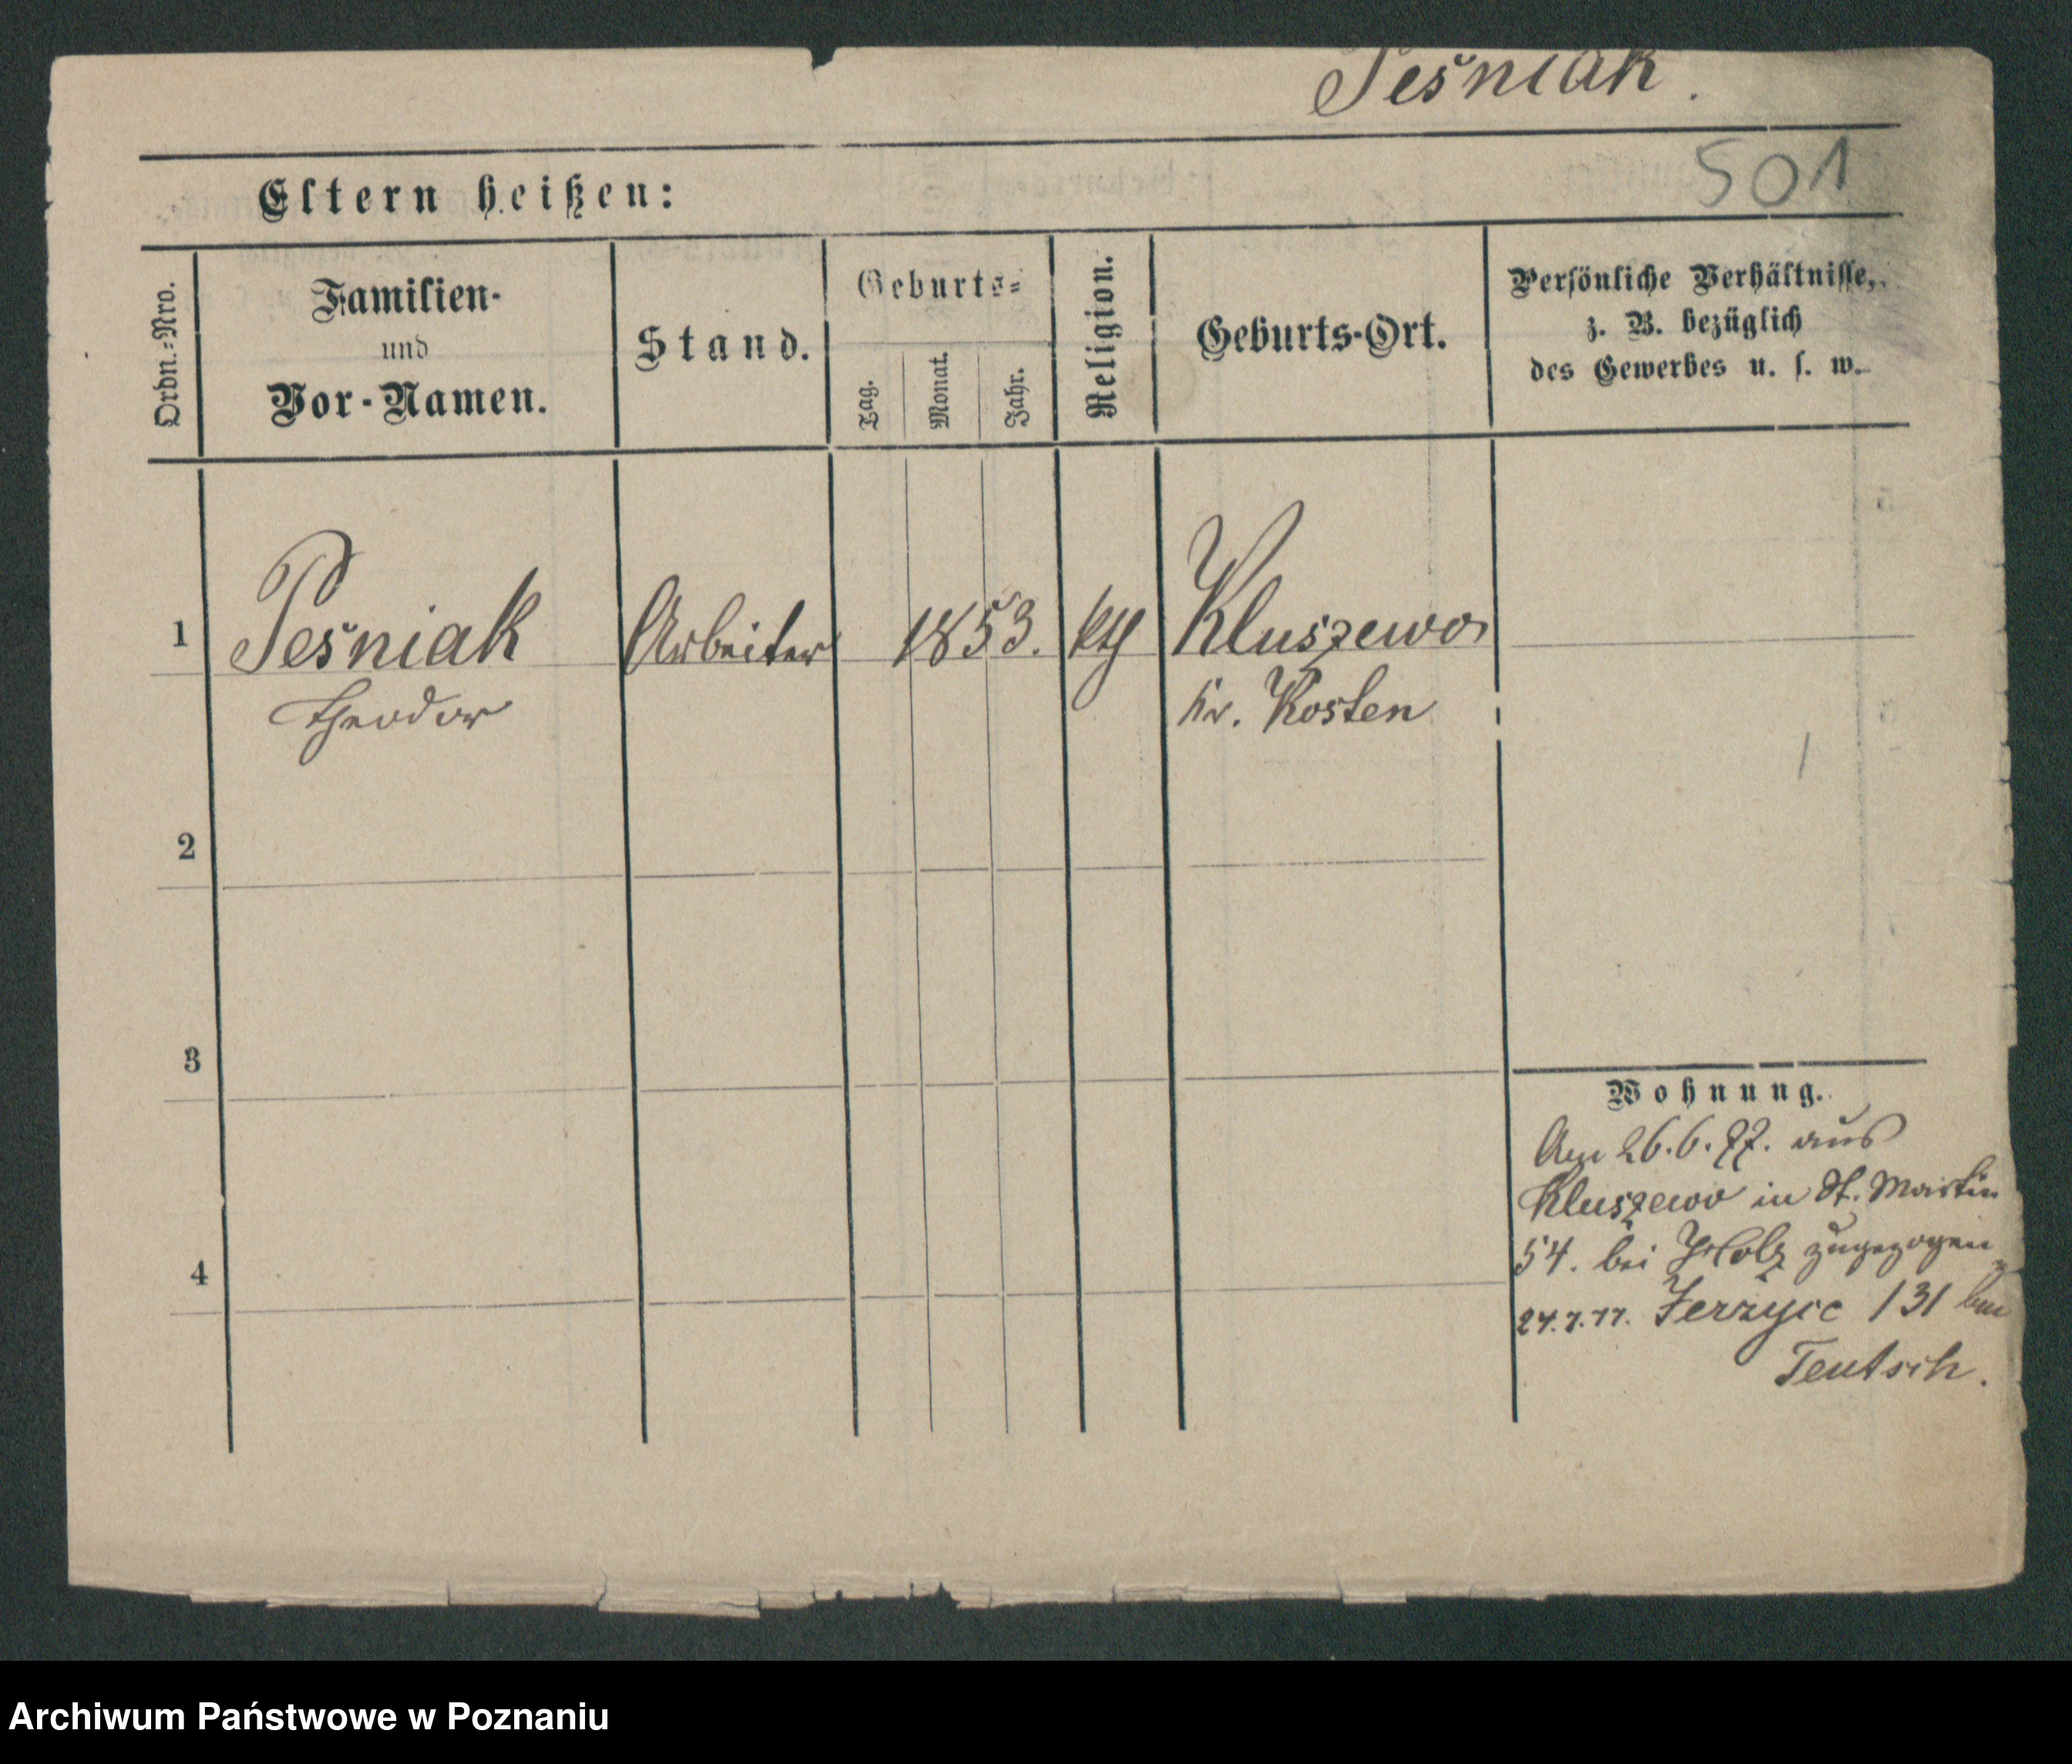 Peśniak.
501
Eltern heißen:
Ordn.-Nro.
Familien-
und
Vor-Namen.
Stand.
Geburts-
Tag.
Monat.
Jahr.
Religion.
Geburts-Ort.
Persönliche Verhältnisse,
z. B. bezüglich
des Gewerbes u. s. w.
1 Peśniak Arbeiter 1853. kth Kluszewo
Theodor Kr. Kosten
2
3
4
Wohnung.
Am 26.6.77. aus
Kluszewo in St. Martin
54. bei Holz zugezogen
24.7.77. Jerzyce 131 bei
Teutsch.
Archiwum Państwowe w Poznaniu